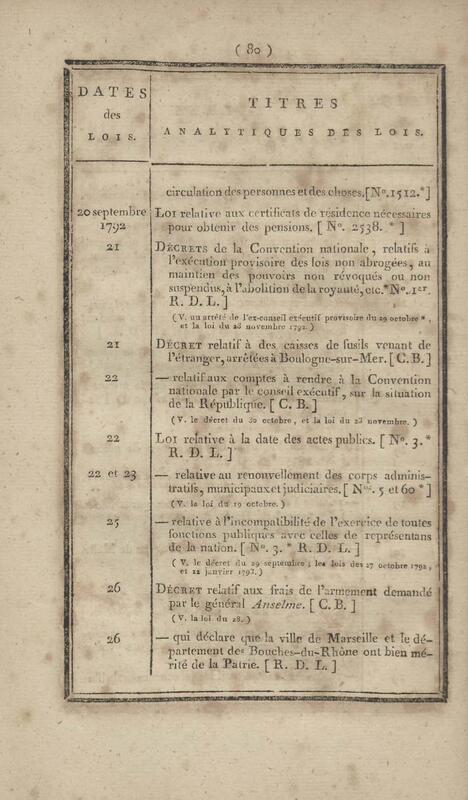 ( 80 )
DATES
des
LOIS.
TITRES
ANALYTIQUES DES LOIS.
circulation des personnes et des choses.[N°.1512.*]
20 septembre
1792
LOI relative aux certificats de résidence nécessaires
pour obtenir des pensions. [ N°. 2538. * ]
21
DÉCRETS de la Convention nationale, relatifs à
l'exécution provisoire des lois non abrogées, au
maintien des pouvoirs non révoqués ou non
suspendus, à l'abolition de la royauté, etc.*N°. 1er.
R. D. L. ]
( V. un arrêté de l'ex-conseil exécutif provisoire du 29 octobre *,
et la loi du 28 novembre 1792. )
21
DÉCRET relatif à des caisses de fusils venant de
l'étranger, arrêtées à Boulogne-sur-Mer. [ C. B. ]
22
— relatif aux comptes à rendre à la Convention
nationale par le conseil exécutif, sur la situation
de la République. [ C. B. ]
( V. le décret du 30 octobre, et la loi du 23 novembre. )
22
LOI relative à la date des actes publics. [ N°. 3. *
R. D. L. ]
22 et 23
— relative au renouvellement des corps adminis-
tratifs, municipaux et judiciaires. [ Nos. 5 et 60 * ]
( V. la loi du 19 octobre. )
25
— relative à l'incompatibilité de l'exercice de toutes
fonctions publiques avec celles de représentans
de la nation. [ N°. 3. * R. D. L. ]
( V. le décret du 29 septembre ; les lois des 27 octobre 1792,
et 22 janvier 1793. )
26
DÉCRET relatif aux frais de l'armement demandé
par le général Anselme. [ C. B. ]
( V. la loi du 28. )
26
— qui déclare que la ville de Marseille et le dé-
partement des Bouches-du-Rhône ont bien mé-
rité de la Patrie. [ R. D. L. ]